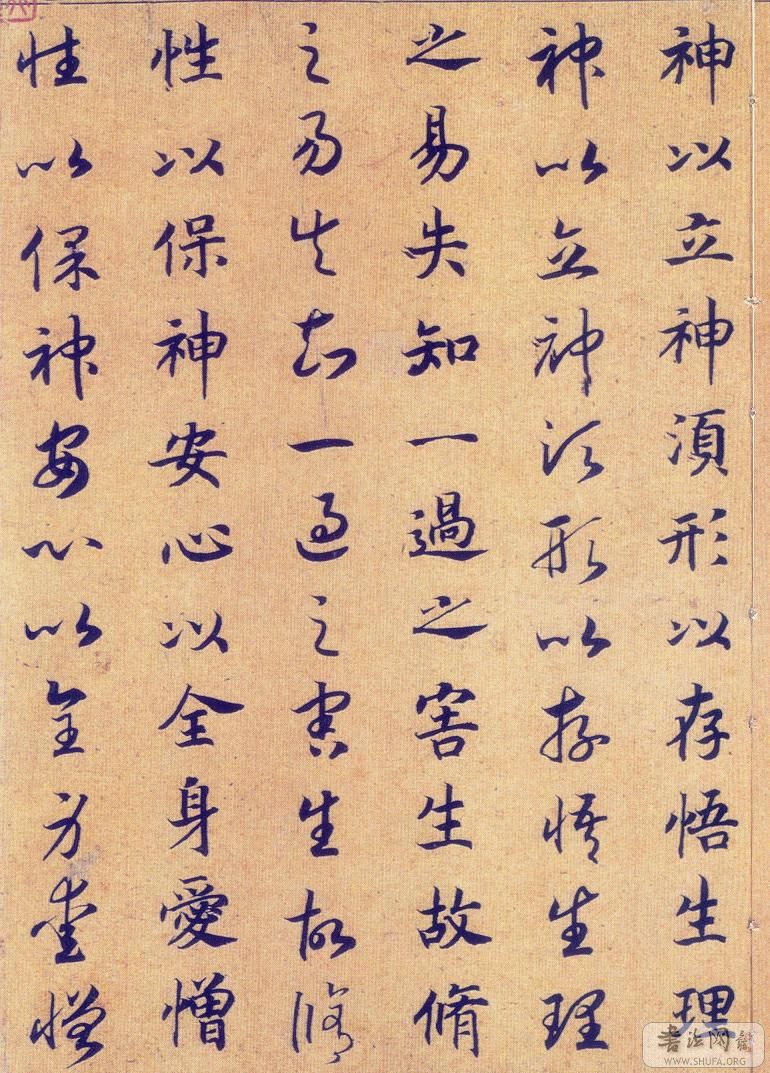 神以立神須形以存悟生理
神以立神須形以存悟生理
之易失知一過之害生故脩
之易失知一過之害生故脩
性以保神安心以全身愛憎
性以保神安心以全身愛憎
書法网
WWW.SHUFA.ORG